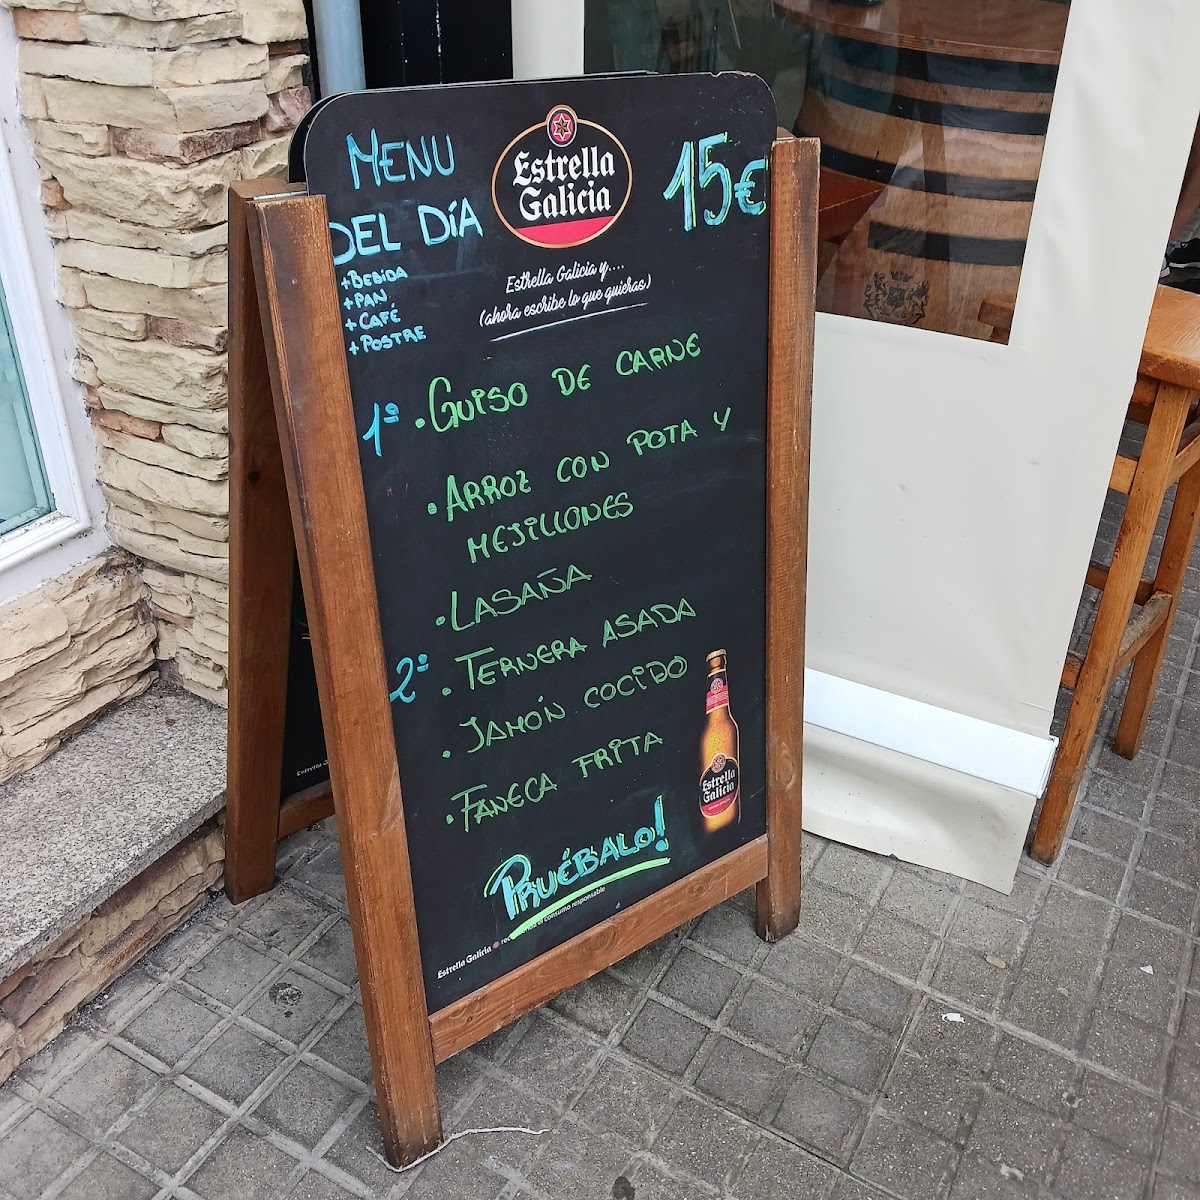 MENU
DEL DÍA
+BEBIDA
+PAN
+CAFÉ
+POSTRE
Estrella
Galicia
15€
Estrella Galicia y....
(ahora escribe lo que quieras)
1º
• GUISO DE CARNE
• ARROZ CON POTA Y
MEJILLONES
• LASAÑA
2º
• TERNERA ASADA
• JAMÓN COCIDO
• FANECA FRITA
Estrella
Galicia
PRUÉBALO!
Estrella Galicia consumo responsable